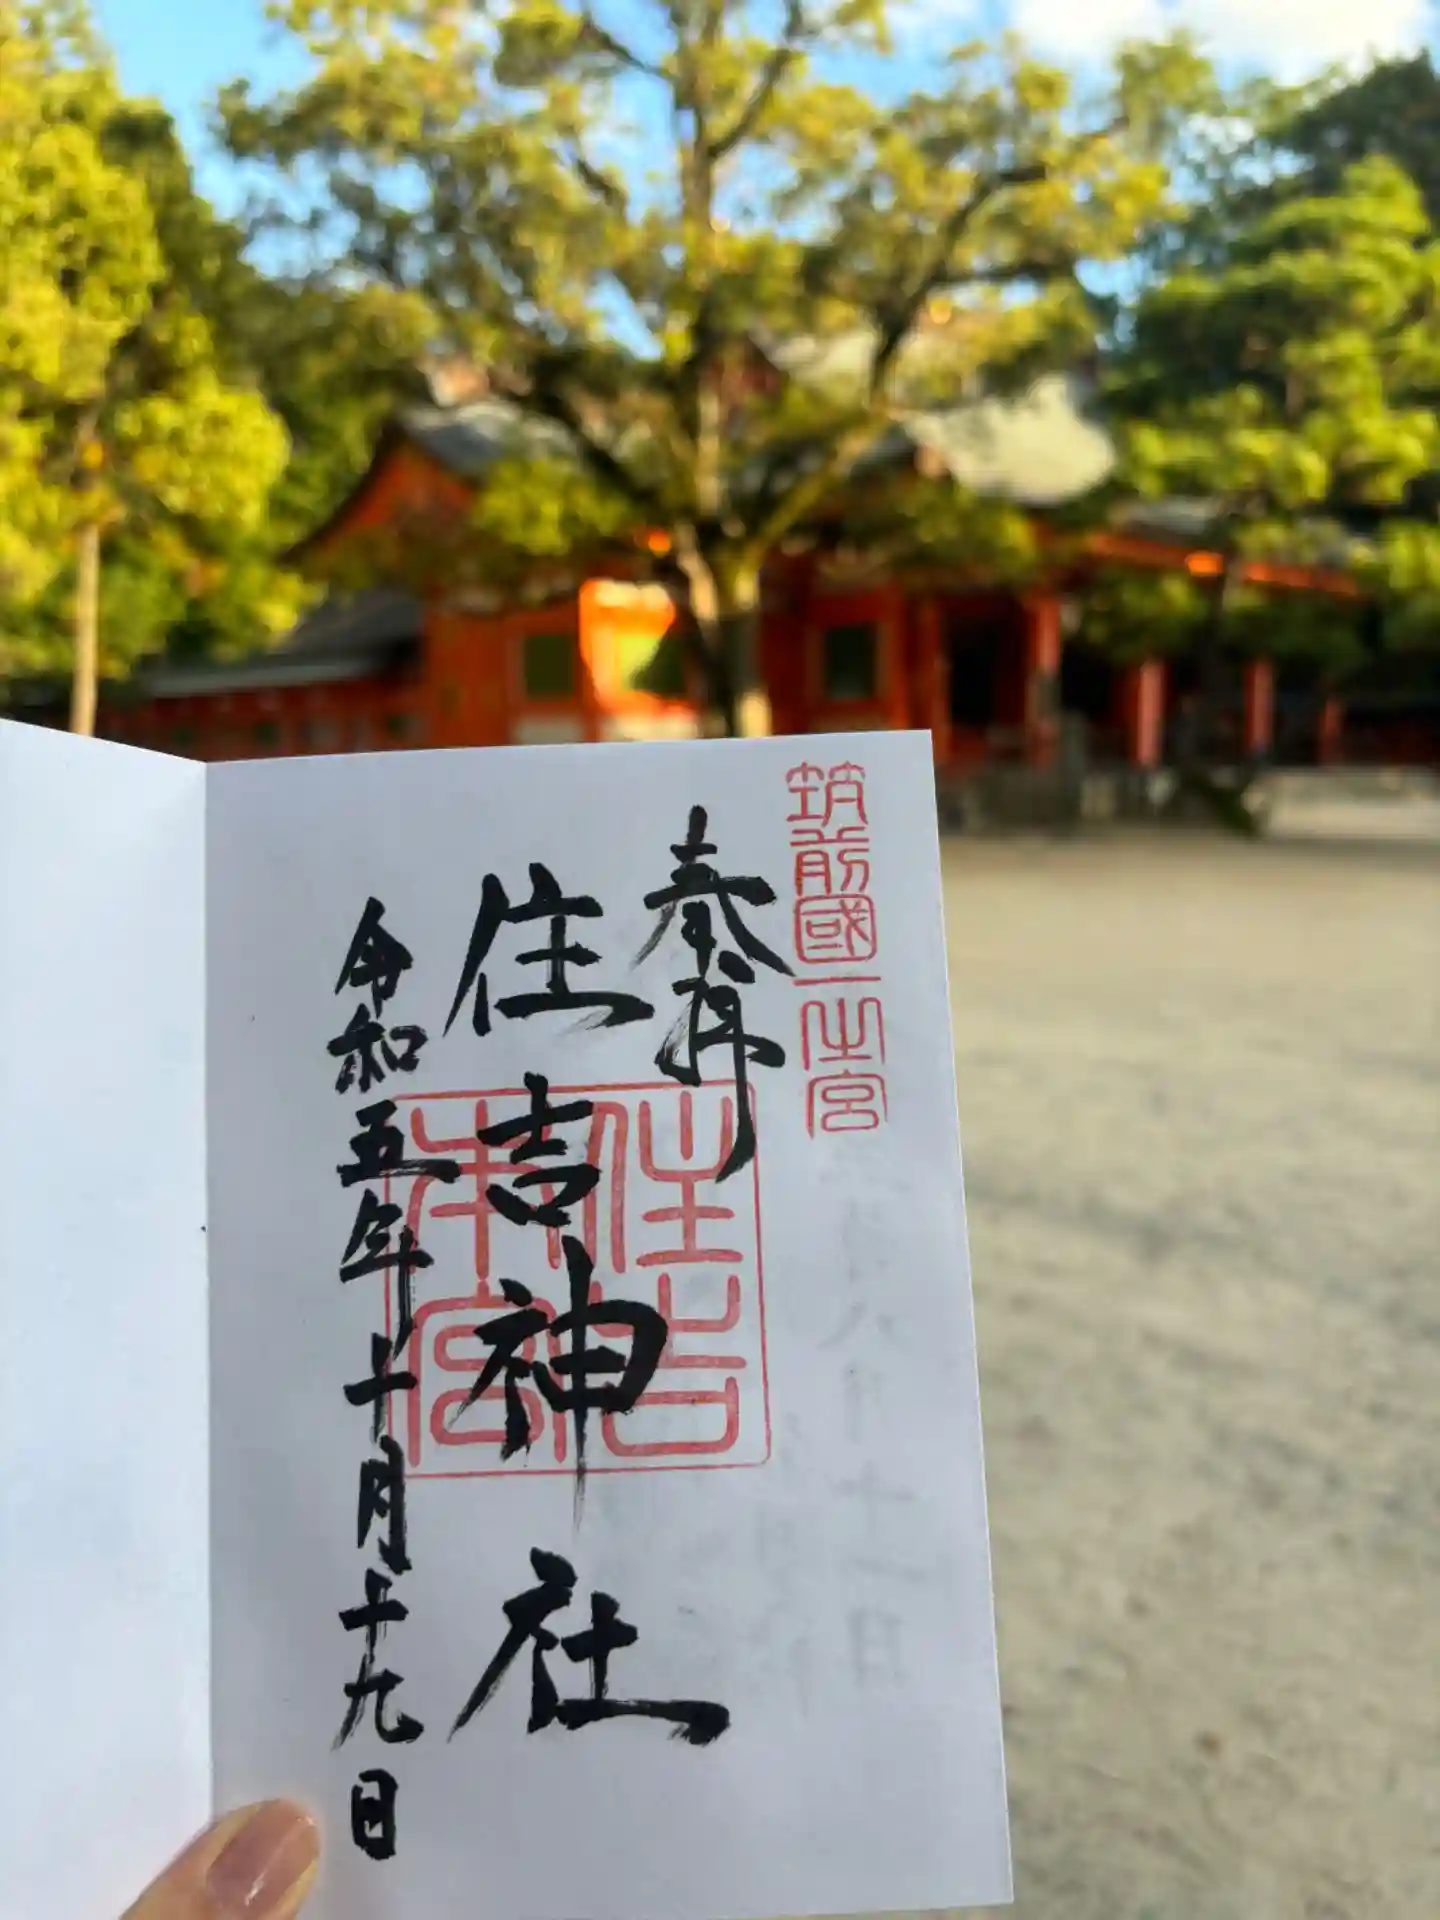 筑前國一之宮
奉拝
住吉神社
住吉
本宮
令和五年十月十九日